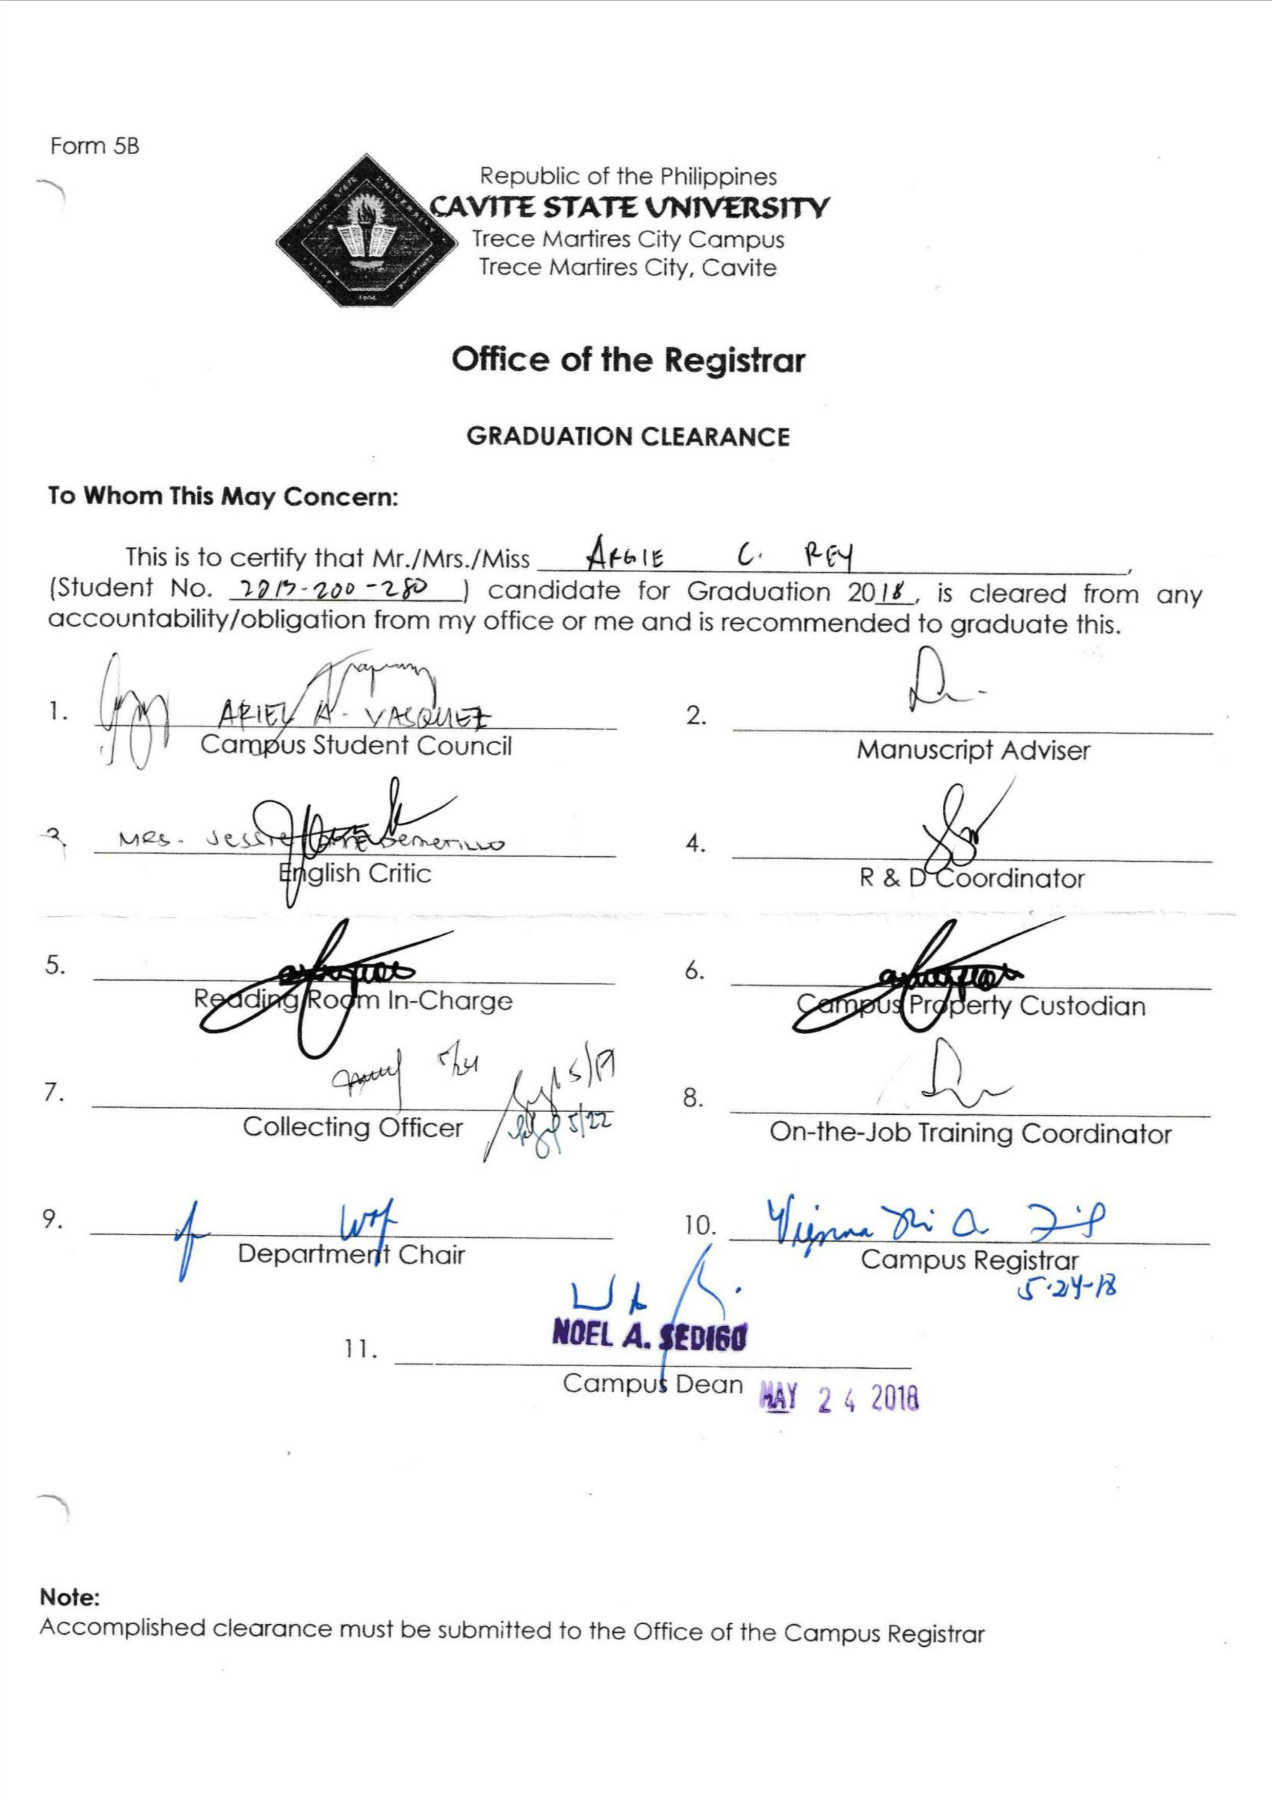 Form 5B
Republic of the Philippines
CAVITE STATE UNIVERSITY
Trece Martires City Campus
Trece Martires City, Cavite
Office of the Registrar
GRADUATION CLEARANCE
To Whom This May Concern:
This is to certify that Mr./Mrs./Miss ARGIE C. REY,
(Student No. ) candidate for Graduation 2018, is cleared from any
accountability/obligation from my office or me and is recommended to graduate this.
1. ARIEL A. VASQUEZ
Campus Student Council
2.
Manuscript Adviser
3. MRS.
English Critic
4.
R & D Coordinator
5.
Reading Room In-Charge
6.
Campus Property Custodian
7. 5/19
Collecting Officer 5/22
8.
On-the-Job Training Coordinator
9.
Department Chair
10.
Campus Registrar
5-24-18
NOEL A. SEDIGO
11.
Campus Dean MAY 24 2018
Note:
Accomplished clearance must be submitted to the Office of the Campus Registrar